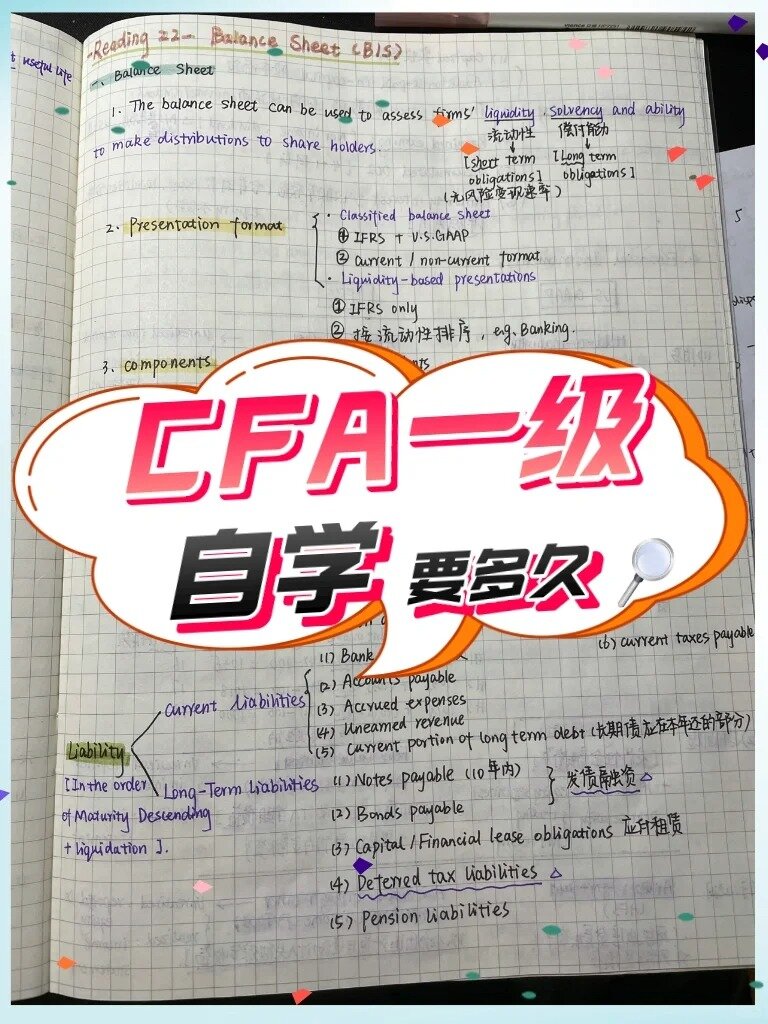 Reading 22- Balance Sheet (B/S)
useful life
一、Balance Sheet
1. The balance sheet can be used to assess firms' liquidity, solvency and ability
to make distributions to share holders.
流动性 偿付能力
[short term obligations] [Long term obligations]
(无风险变现速率)
2. Presentation format
· Classified balance sheet
① IFRS + U.S.GAAP
② current / non-current format
· Liquidity-based presentations
① IFRS only
② 按流动性排序, eg. Banking.
3. components
CFA一级
自学要多久
(1) Bank
(6) current taxes payable
Current Liabilities
(2) Accounts payable
(3) Accrued expenses
(4) Unearned revenue
(5) Current portion of long term debt (长期债应在本年还的部分)
Liability
[In the order
of Maturity Descending
+ liquidation].
Long-Term Liabilities
(1) Notes payable (10年内)
发债融资
(2) Bonds payable
(3) Capital / Financial lease obligations 应付租赁
(4) Deferred tax liabilities
(5) Pension liabilities
5